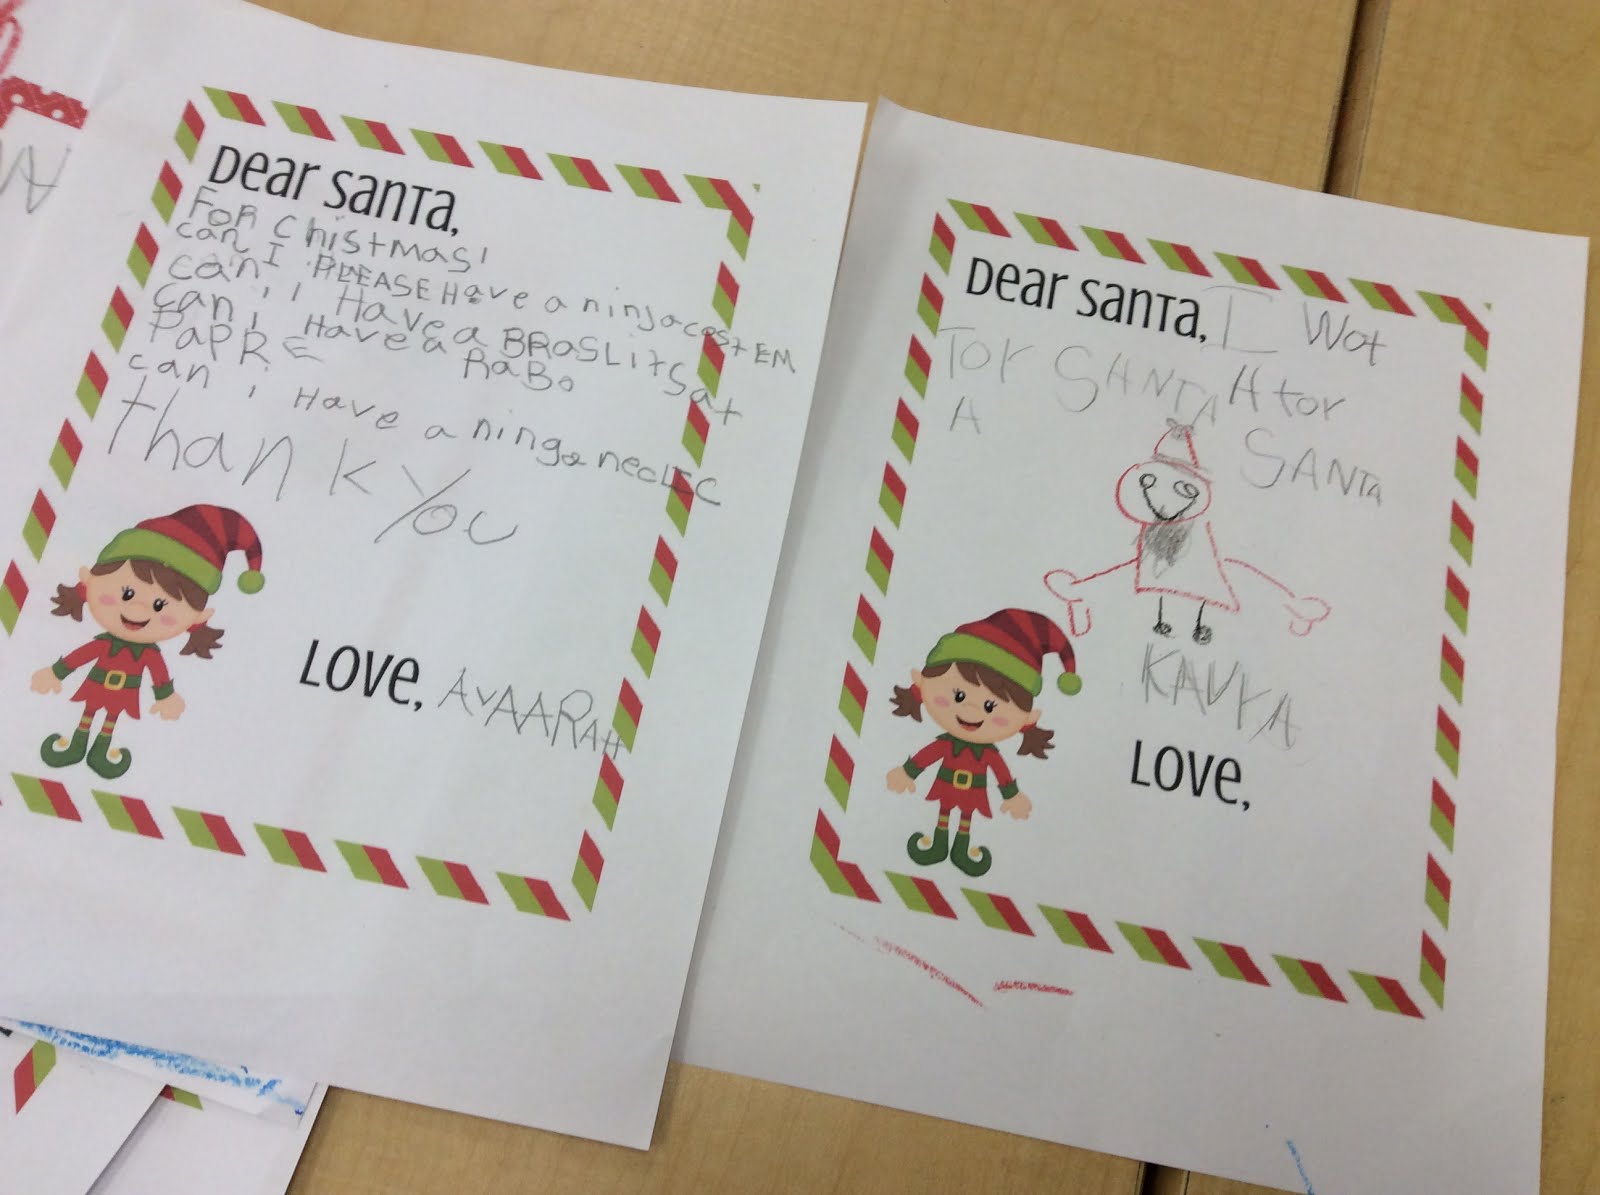 Dear Santa,
FOR Chistmas!
can I PLEASE Have a ninja costEM
can i Have a BRASLit Sat
can i Have a RaBo
PaPR
can i Have a ninga necLEC
thank you
Love, AVAARAH
Dear Santa, I Wot
Tor SANTA A tor
A SANTA
KAVYA
Love,